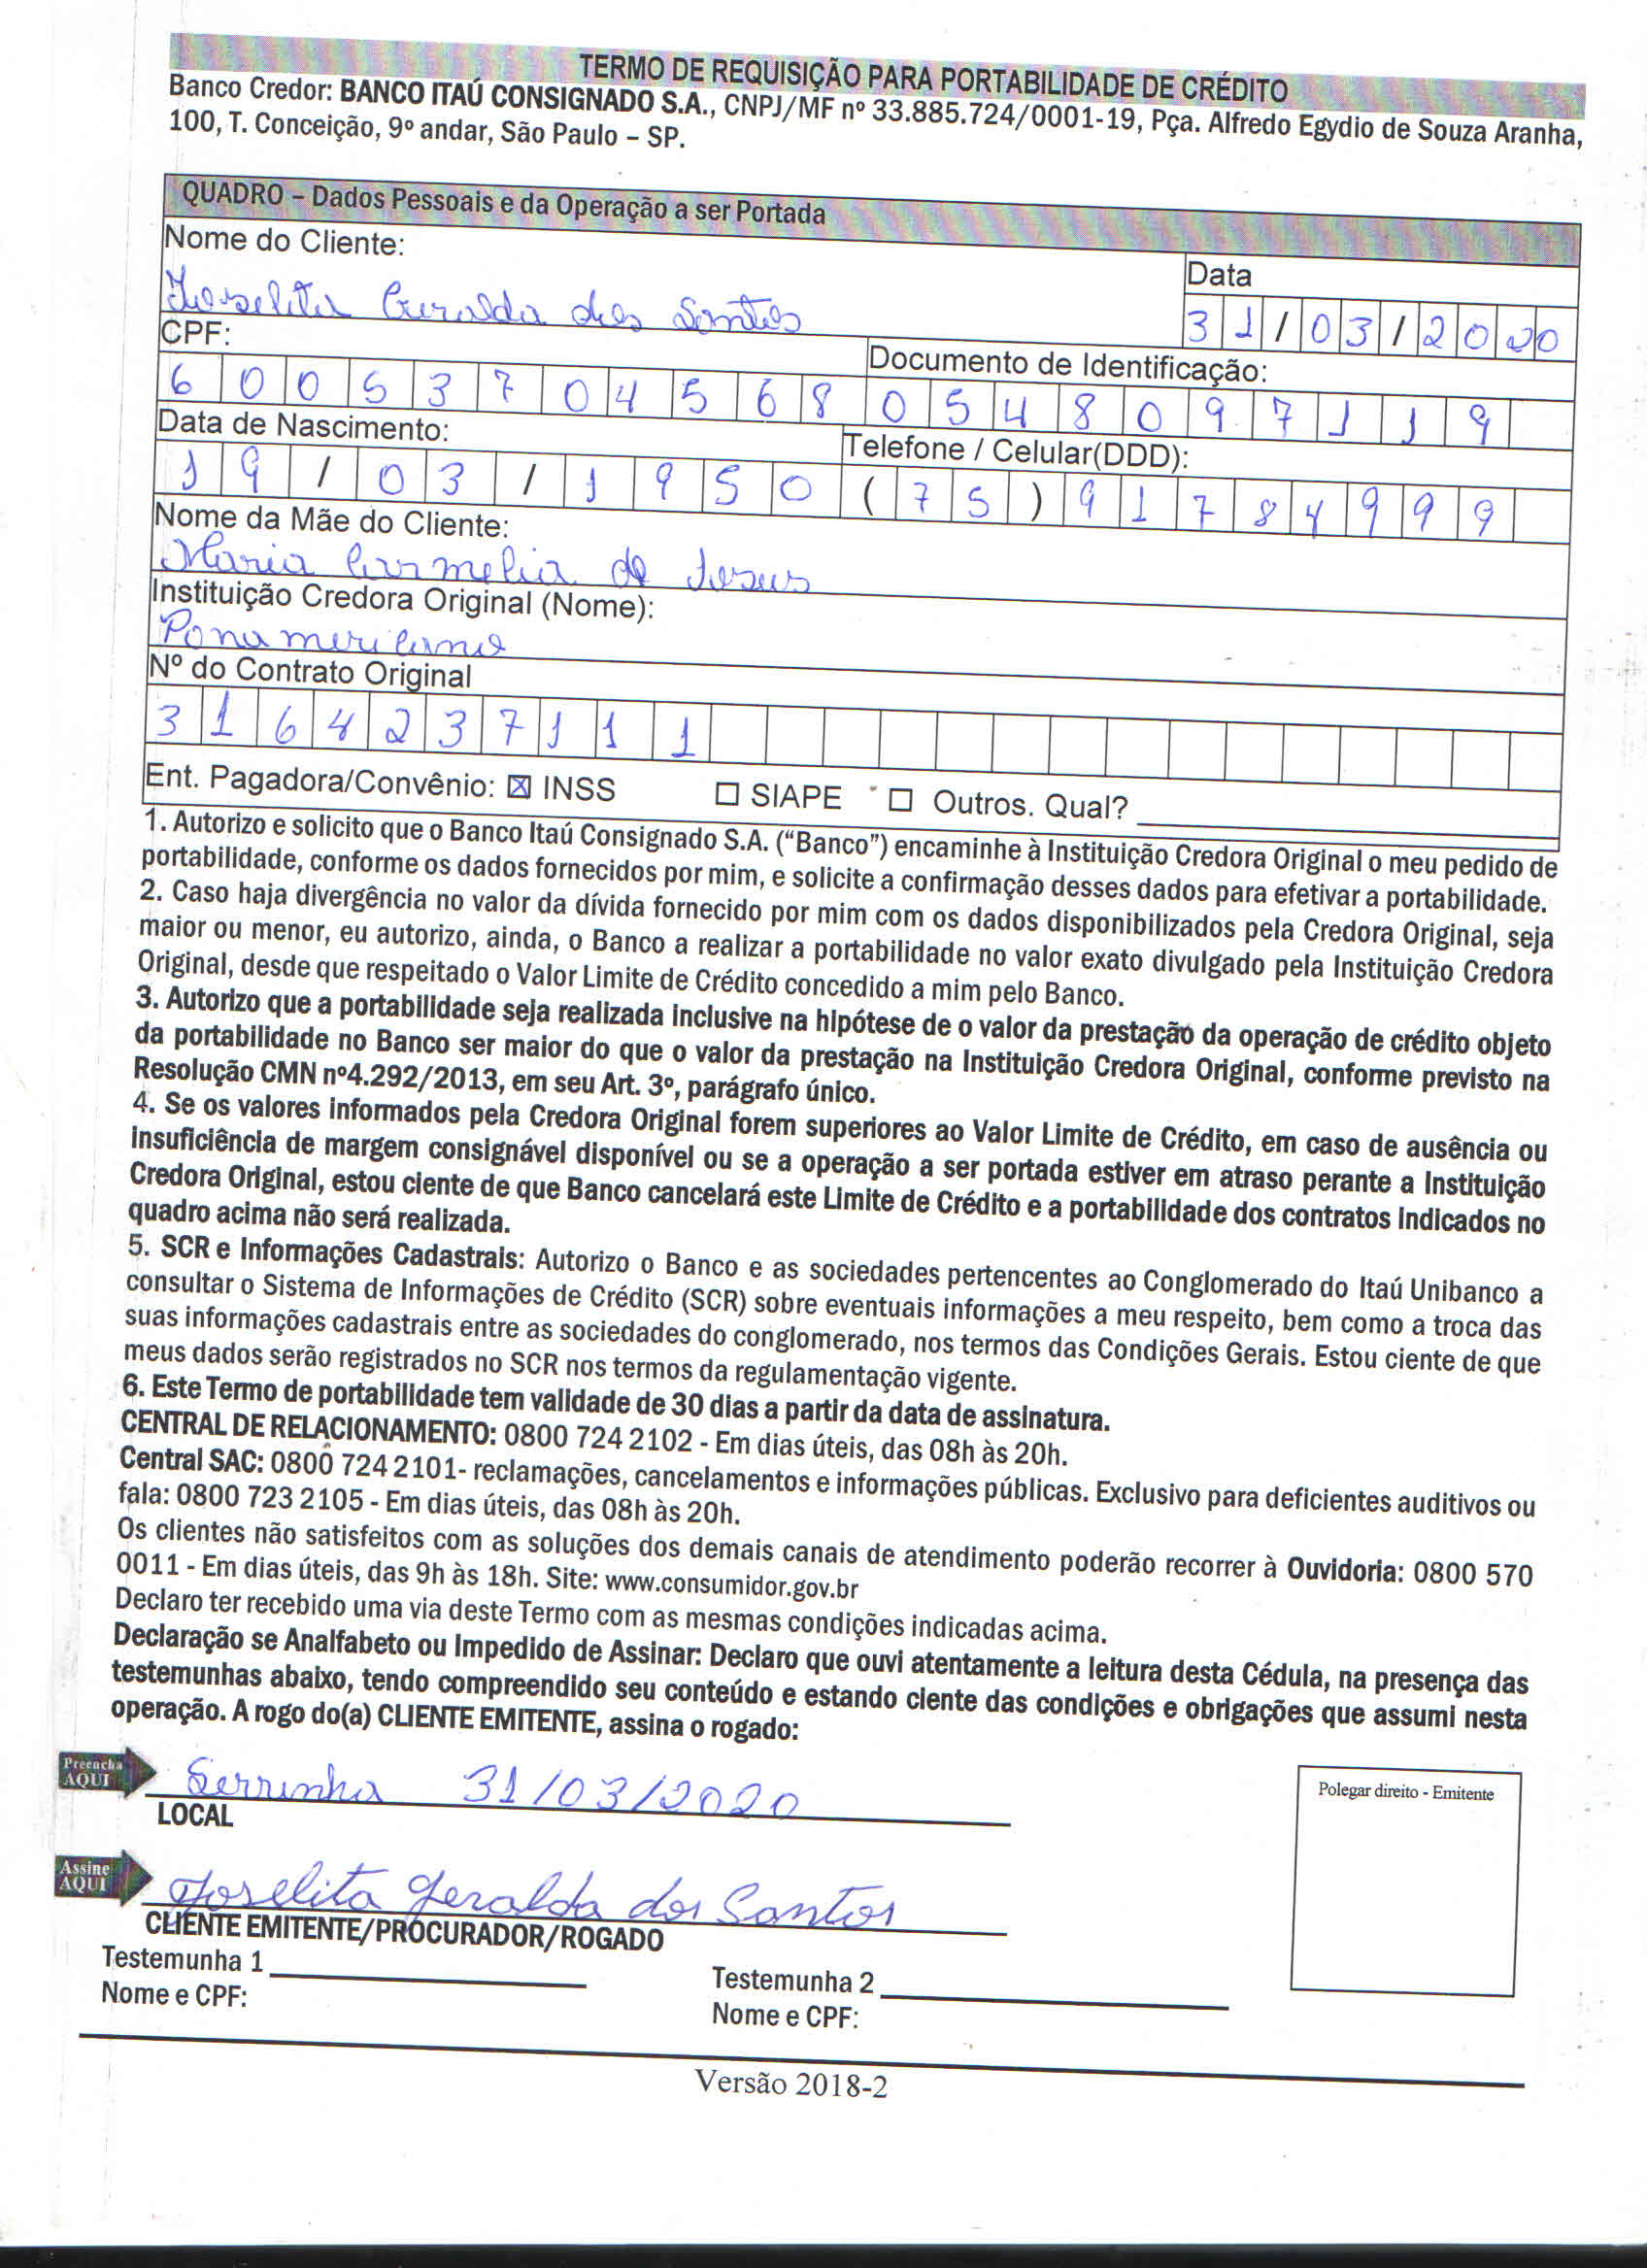 TERMO DE REQUISIÇÃO PARA PORTABILIDADE DE CRÉDITO
Banco Credor: BANCO ITAÚ CONSIGNADO S.A., CNPJ/MF nº 33.885.724/0001-19, Pça. Alfredo Egydio de Souza Aranha,
100, T. Conceição, 9º andar, São Paulo – SP.
QUADRO – Dados Pessoais e da Operação a ser Portada
Nome do Cliente:
Data
Joselita Geralda dos Santos
31/03/2020
CPF:
Documento de Identificação:
60053704568
0548097119
Data de Nascimento:
Telefone / Celular(DDD):
19/03/1950
(75)91784999
Nome da Mãe do Cliente:
Maria Carmelia de Jesus
Instituição Credora Original (Nome):
Panamericano
Nº do Contrato Original
3164237111
Ent. Pagadora/Convênio: ☒ INSS ☐ SIAPE ☐ Outros. Qual?
1. Autorizo e solicito que o Banco Itaú Consignado S.A. (“Banco”) encaminhe à Instituição Credora Original o meu pedido de
portabilidade, conforme os dados fornecidos por mim, e solicite a confirmação desses dados para efetivar a portabilidade.
2. Caso haja divergência no valor da dívida fornecido por mim com os dados disponibilizados pela Credora Original, seja
maior ou menor, eu autorizo, ainda, o Banco a realizar a portabilidade no valor exato divulgado pela Instituição Credora
Original, desde que respeitado o Valor Limite de Crédito concedido a mim pelo Banco.
3. Autorizo que a portabilidade seja realizada inclusive na hipótese de o valor da prestação da operação de crédito objeto
da portabilidade no Banco ser maior do que o valor da prestação na Instituição Credora Original, conforme previsto na
Resolução CMN nº4.292/2013, em seu Art. 3º, parágrafo único.
4. Se os valores informados pela Credora Original forem superiores ao Valor Limite de Crédito, em caso de ausência ou
insuficiência de margem consignável disponível ou se a operação a ser portada estiver em atraso perante a Instituição
Credora Original, estou ciente de que Banco cancelará este Limite de Crédito e a portabilidade dos contratos indicados no
quadro acima não será realizada.
5. SCR e Informações Cadastrais: Autorizo o Banco e as sociedades pertencentes ao Conglomerado do Itaú Unibanco a
consultar o Sistema de Informações de Crédito (SCR) sobre eventuais informações a meu respeito, bem como a troca das
suas informações cadastrais entre as sociedades do conglomerado, nos termos das Condições Gerais. Estou ciente de que
meus dados serão registrados no SCR nos termos da regulamentação vigente.
6. Este Termo de portabilidade tem validade de 30 dias a partir da data de assinatura.
CENTRAL DE RELACIONAMENTO: 0800 724 2102 - Em dias úteis, das 08h às 20h.
Central SAC: 0800 724 2101- reclamações, cancelamentos e informações públicas. Exclusivo para deficientes auditivos ou
fala: 0800 723 2105 - Em dias úteis, das 08h às 20h.
Os clientes não satisfeitos com as soluções dos demais canais de atendimento poderão recorrer à Ouvidoria: 0800 570
0011 - Em dias úteis, das 9h às 18h. Site: www.consumidor.gov.br
Declaro ter recebido uma via deste Termo com as mesmas condições indicadas acima.
Declaração se Analfabeto ou Impedido de Assinar: Declaro que ouvi atentamente a leitura desta Cédula, na presença das
testemunhas abaixo, tendo compreendido seu conteúdo e estando ciente das condições e obrigações que assumi nesta
operação. A rogo do(a) CLIENTE EMITENTE, assina o rogado:
Preencha
AQUI
Serrinha 31/03/2020
Polegar direito - Emitente
LOCAL
Assine
AQUI
Joselita Geralda dos Santos
CLIENTE EMITENTE/PROCURADOR/ROGADO
Testemunha 1
Testemunha 2
Nome e CPF:
Nome e CPF:
Versão 2018-2